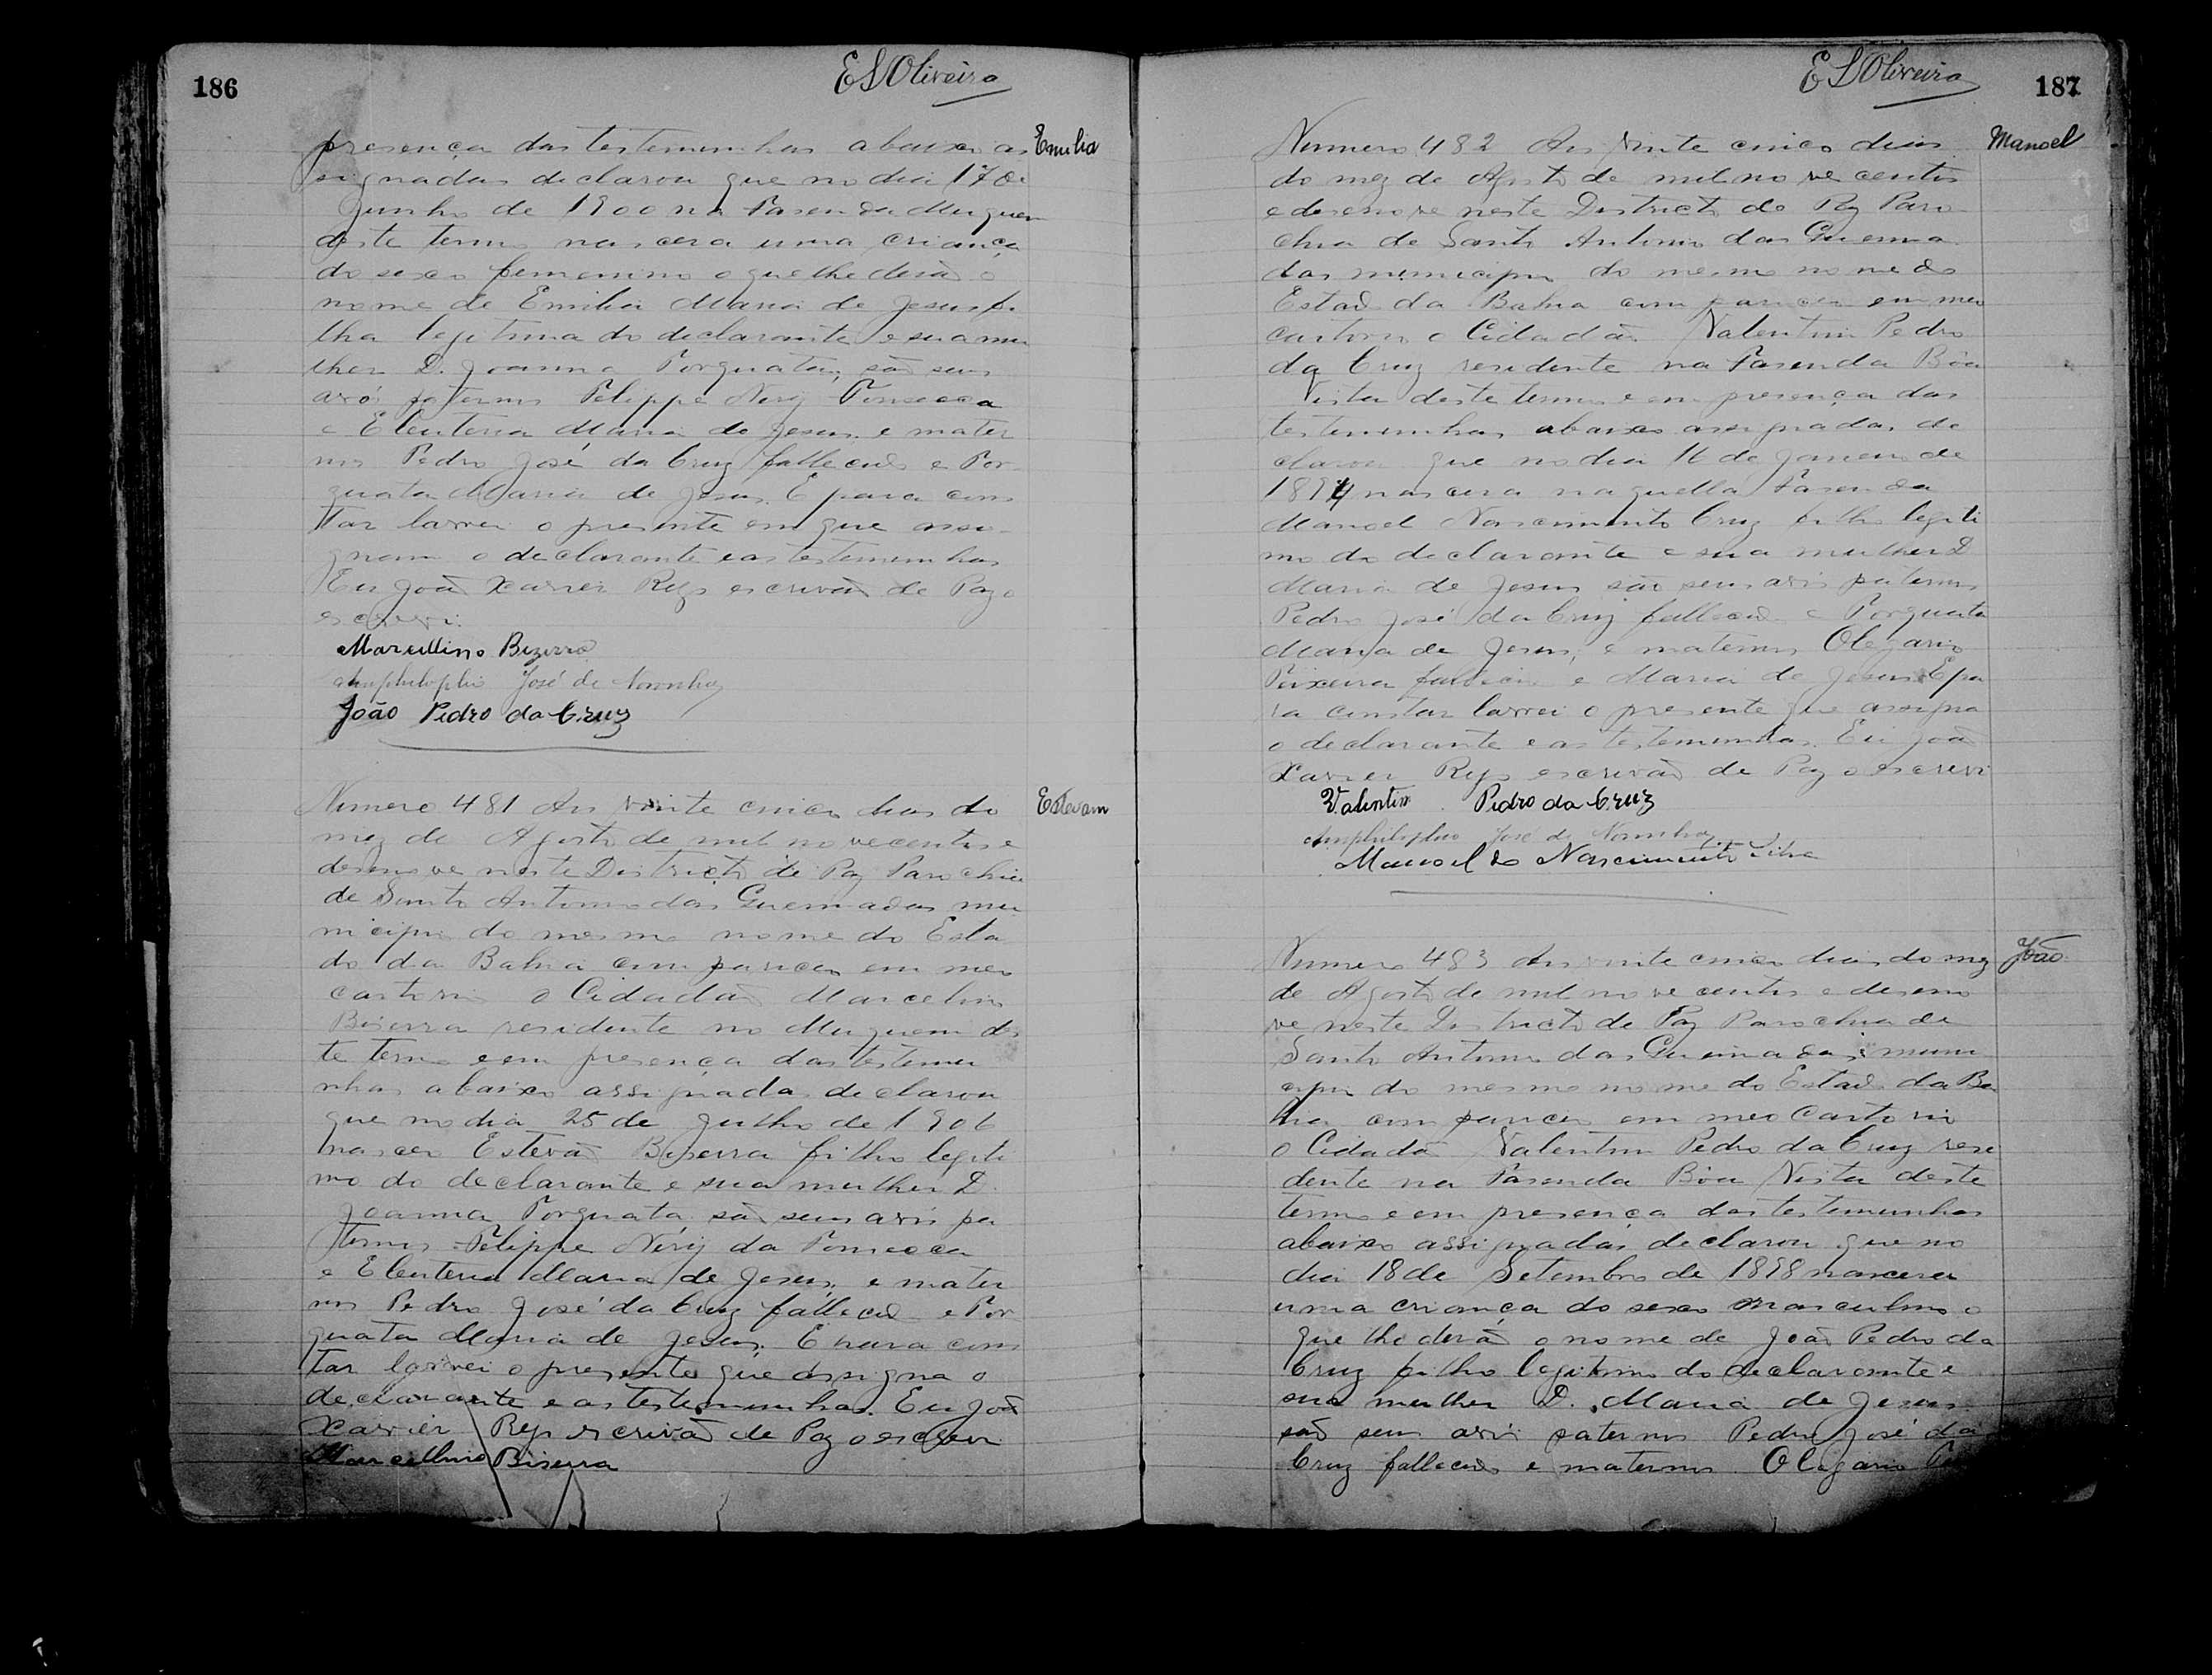 186
E S Oliveira
presença das testemunhas abaixo as
Emilia
signadas declarou que no dia 17 de
Junho de 1900 na Fasenda Muquem
deste termo nascera uma criança
do sexo femenino o que lhe derão o
nome de Emilia Maria de Jesus fi
lha legitima do declarante e sua mu
lher D. Joanna Torquata, são seus
avós paternos Felippe Nery Fonseca
e Eleuteria Maria de Jesus e mater
nos Pedro José da Cruz fallecido e Tor
quata Maria de Jesus. E para cons
tar lavrei o presente em que assi
gnam o declarante e as testemunhas
Eu João Xavier Reys escrivão de Paz o
escrevi.
Marcellino Bizerra
Amphilophio José de Noronha
João Pedro da Cruz
Numero 481 Aos vinte cinco dias do
Estevam
mez de Agosto de mil novecentos e
desenove neste Districto de Paz Parochia
de Santo Antonio das Queimadas mu
nicipio do mesmo nome do Esta
do da Bahia compareceu em meo
cartorio o Cidadão Marcelino
Biserra residente no Muquem des
te termo e em presença das testemu
nhas abaixo assignadas declarou
que no dia 25 de Julho de 1906
nasceo Estevão Biserra filho legiti
mo do declarante e sua mulher D.
Joanna Torquata, são seus avós pa
ternos Felippe Nery da Fonseca
e Eleuteria Maria de Jesus, e mater
nos Pedro José da Cruz fallecido e Tor
quata Maria de Jesus. E para cons
tar lavrei o presente que assigna o
declarante e as testemunhas. Eu João
Xavier Reys escrivão de Paz o escrevi
Marcellino Biserra
E S Oliveira
187
Numero 482 Aos vinte cinco dias
Manoel
do mez de Agosto de mil nove centos
e desenove neste Districto de Paz Paro
chia de Santo Antonio das Queima
das municipio do mesmo nome do
Estado da Bahia compareceu em meu
cartorio o Cidadão Valentim Pedro
da Cruz residente na Fasenda Bôa
Vista deste termo e em presença das
testemunhas abaixo assignadas de
clarou que no dia 16 de Janeiro de
1894 nascera naquella Fasenda
Manoel Nascimento Cruz filho legiti
mo do declarante e sua mulher D
Maria de Jesus são seus avós paternos
Pedro José da Cruz fallecido e Torquata
Maria de Jesus, e maternos Olegario
Teixeira fallecido e Maria de Jesus E pa
ra constar lavrei o presente que assigna
o declarante e as testemunhas. Eu João
Xavier Reys escrivão de Paz o escrevi
Valentim Pedro da Cruz
Amphilophio José de Noronha
Manoel do Nascimento Silva
Numero 483 Aos vinte cinco dias do mez
João
de Agosto de mil nove centos e deseno
ve neste Districto de Paz Parochia de
Santo Antonio das Queimadas muni
cipio do mesmo nome do Estado da Ba
hia compareceu em meo Cartorio
o Cidadão Valentim Pedro da Cruz resi
dente na Fasenda Bôa Vista deste
termo e em presença das testemunhas
abaixo assignadas declarou que no
dia 18 de Setembro de 1898 nascera
uma criança do sexo masculino o
que lhe derão o nome de João Pedro da
Cruz filho legitimo do declarante e
sua mulher D. Maria de Jesus
são seus avós paternos Pedro José da
Cruz fallecido e maternos Olegario